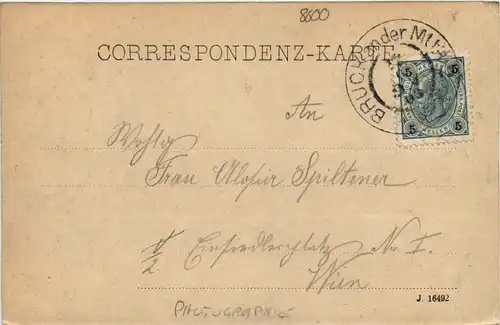 8600
CORRESPONDENZ-KARTE
BRUCK an der MUR
5 5
5 5
An
Wohlg
Frau Aloisia Spiltener
V/2 Einsiedlerplatz Nr. I.
Wien
J. 16492
PHOTOGRAPHIE